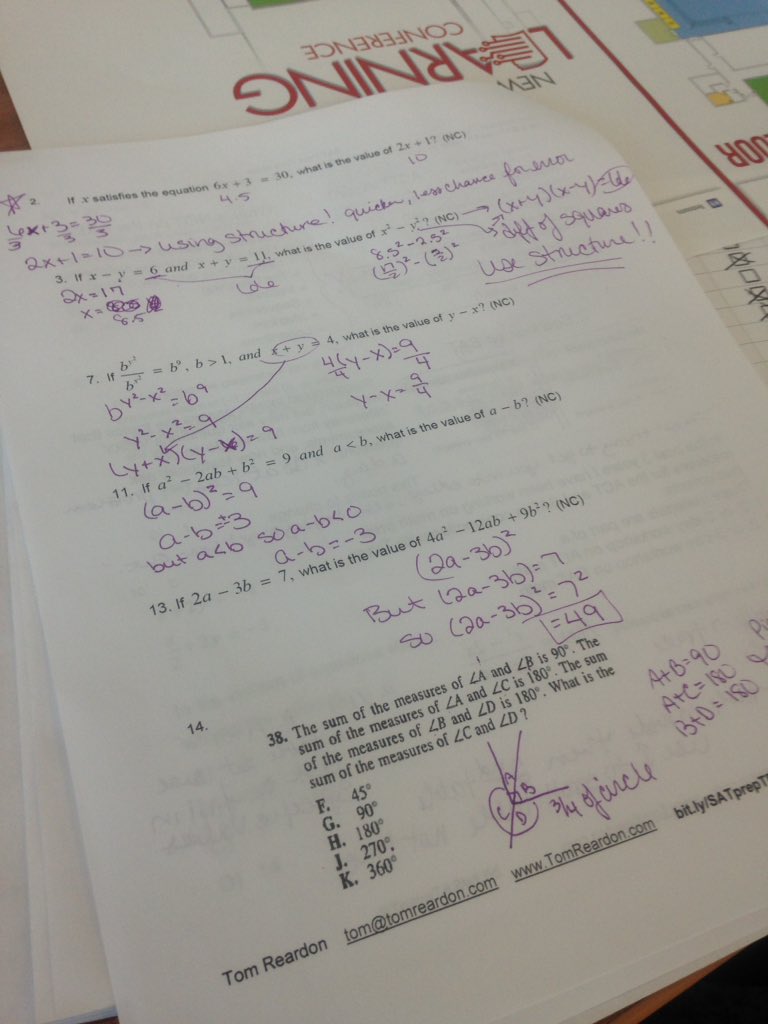 NEW
LEARNING
CONFERENCE
2. If x satisfies the equation 6x + 3 = 30, what is the value of 2x + 1? (NC)
4.5
10
6x+3=30
3 3 3
2x+1=10 → using structure! quicker, less chance for error
3. If x − y = 6 and x + y = 11, what is the value of x² − y²? (NC) → (x+y)(x-y)=66
diff of squares
use structure!!
2x=17
x=
8.5
66
8.5²-2.5²
(17/2)²-(5/2)²
7. If b^(y²)/b^(x²) = b⁹, b > 1, and x + y = 4, what is the value of y − x? (NC)
b^(y²-x²)=b⁹
y²-x²=9
(y+x)(y-x)=9
4(y-x)=9
4 4
y-x=9/4
11. If a² − 2ab + b² = 9 and a < b, what is the value of a − b? (NC)
(a-b)²=9
a-b=±3
but a<b so a-b<0
a-b=-3
13. If 2a − 3b = 7, what is the value of 4a² − 12ab + 9b²? (NC)
(2a-3b)²
But (2a-3b)=7
so (2a-3b)²=7²
=49
14.
38. The sum of the measures of ∠A and ∠B is 90°. The
sum of the measures of ∠A and ∠C is 180°. The sum
of the measures of ∠B and ∠D is 180°. What is the
sum of the measures of ∠C and ∠D?
F. 45°
G. 90°
H. 180°
J. 270°
K. 360°
A+B=90
A+C=180
B+D=180
A
B
C
D
3/4 of circle
Tom Reardon tom@tomreardon.com www.TomReardon.com bit.ly/SATprepT